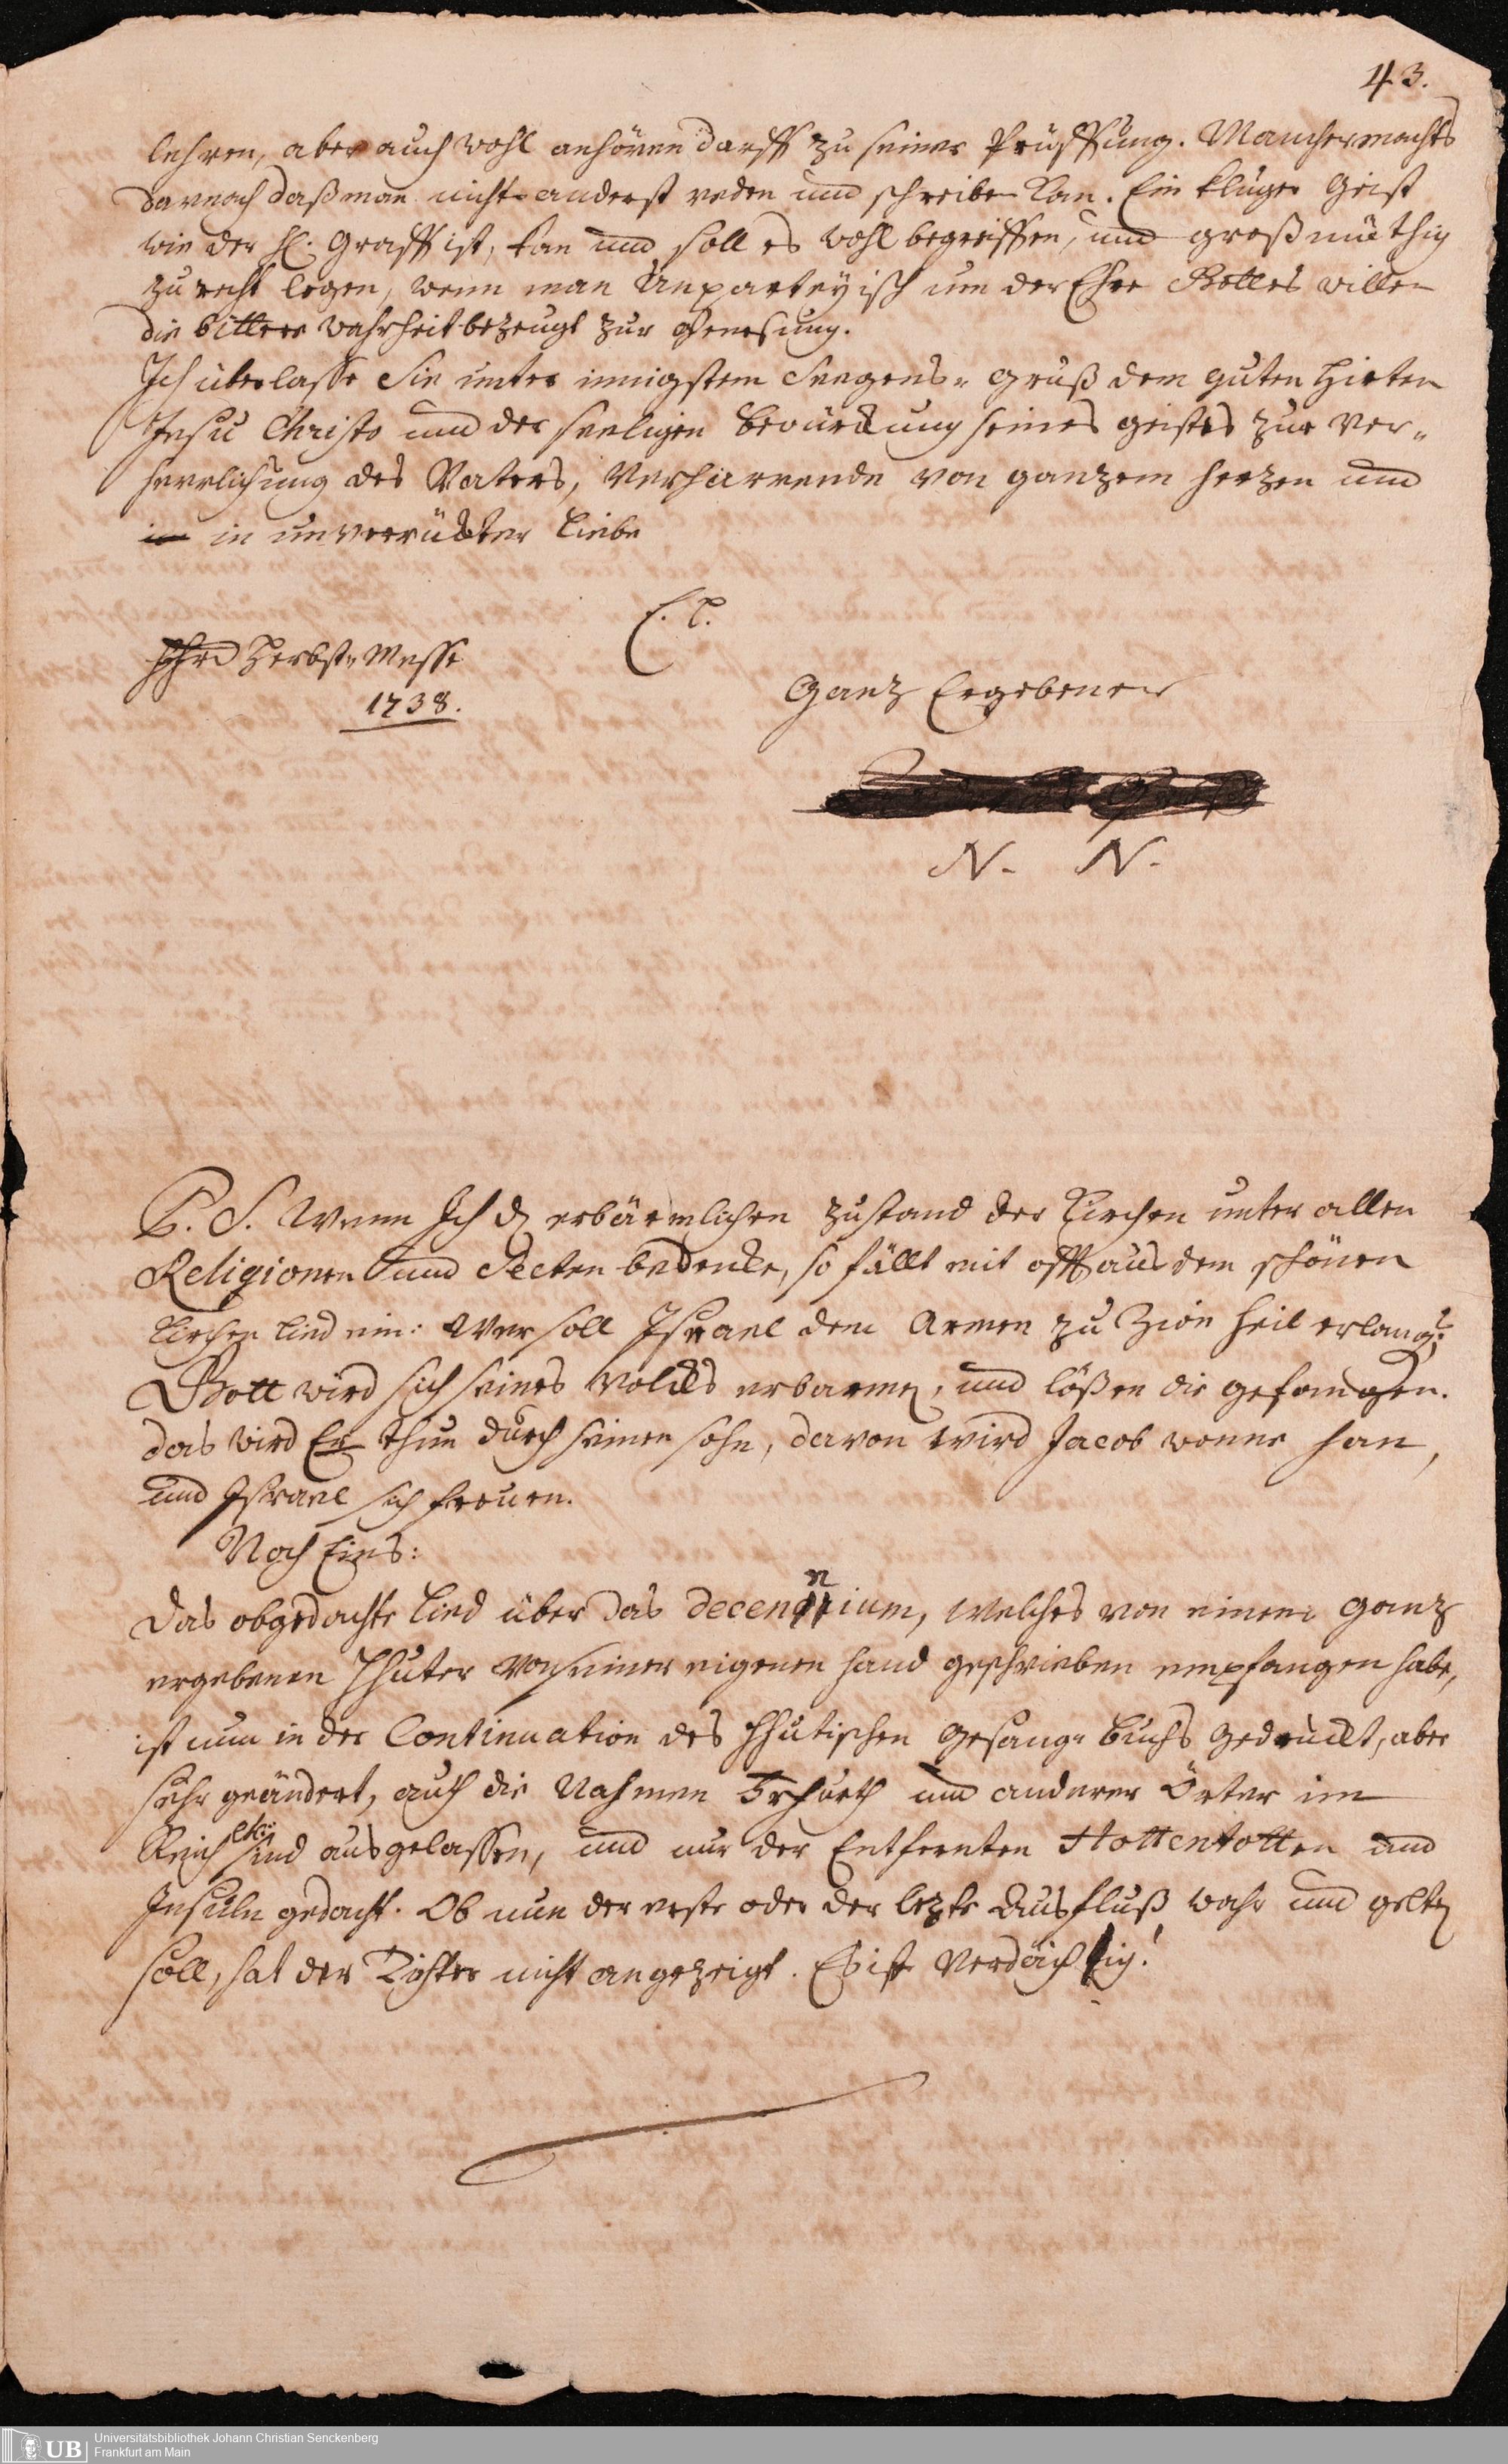 43.
lehren, aber auch wohl anhören darff zu seiner Prüffung. Mancher machts
darnach daß man nicht anderst reden und schreiben kan. Ein kluger Geist
wie der H. Graff ist, kan und soll es wohl begreiffen, und großmüthig
zu recht legen, wenn man Unparteyisch um der Ehre Gottes willen
die bittere Wahrheit bezeugt zur Genesung.
Ich überlasse Sie unter innigstem Seegens- Gruß dem guten Hirten
Jesu Christo und der seeligen Bewürckung seines Geistes zur Ver-
herrlichung des Vaters, Verharrende von ganzem herzen und
in unverrückter Liebe
E. L.
Herbst-Messe
1738.
Ganz Ergebener
N. N.
P. S. Wenn Ich d. erbärmlichen Zustand der Kirchen unter allen
Religionen und Secten bedencke, so fällt mit offt aus dem schönen
Kirchen Lied ein: Wer soll Israel dem Armen zu Zion Heil erlang?
Gott wird sich seines Volcks erbarmen, und lößen die gefangen.
das wird Er thun durch seinen sohn, davon wird Jacob wonne han,
und Israel sich freuen.
Noch Eins:
Das obgedachte Lied über das decennium, welches von einem ganz
ergebenen Hhuter von seiner eigenen hand geschrieben empfangen habe,
ist nun in der Continuation des Hhutischen Gesang-Buchs gedruckt, aber
sehr geändert, auch die Nahmen und anderer Örter im
Reich sind ausgelassen, und nur der Entfernten Hottentotten und
Insuln gedacht. Ob nun der erste oder der lezte Ausfluß wahr und gelten
soll, hat der Dichter nicht angezeigt. Es ist Verdächtig!
UB
Universitätsbibliothek Johann Christian Senckenberg
Frankfurt am Main